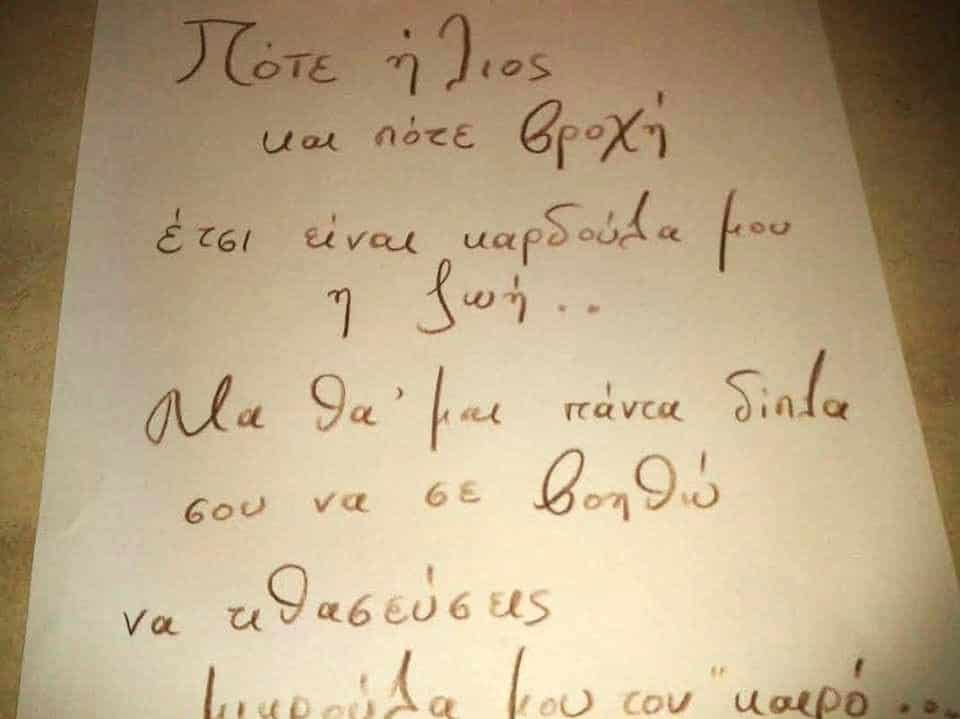 Πότε ήλιος
και πότε βροχή
έτσι είναι καρδούλα μου
η ζωή..
Μα θα' μαι πάντα δίπλα
σου να σε βοηθώ
να τιθασεύσεις
μικρούλα μου τον "καιρό...